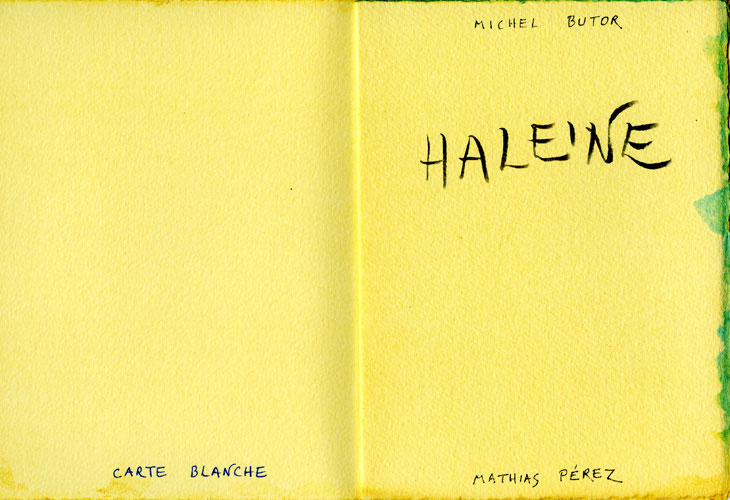 CARTE BLANCHE
MICHEL BUTOR
HALEINE
MATHIAS PÉREZ